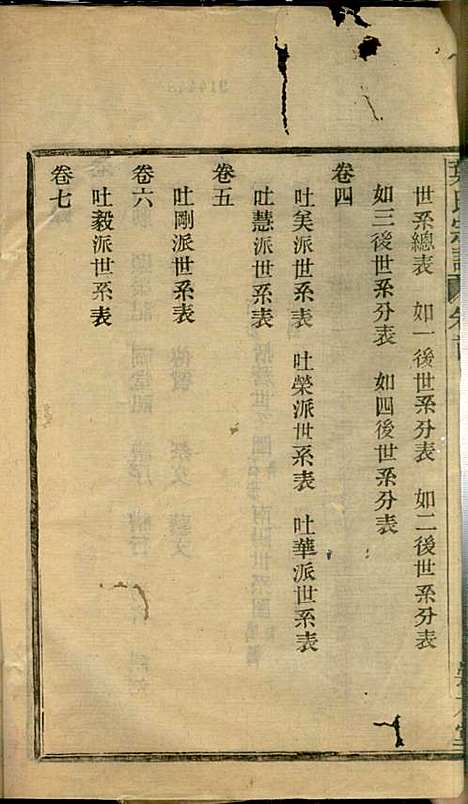 氏宗譜
世系總表　如一後世系分表　如二後世系分表
如三後世系分表　如四後世系分表
卷四
吐美派世系表　吐榮派世系表　吐華派世系表
吐慧派世系表
卷五
吐剛派世系表
卷六
吐毅派世系表
卷七